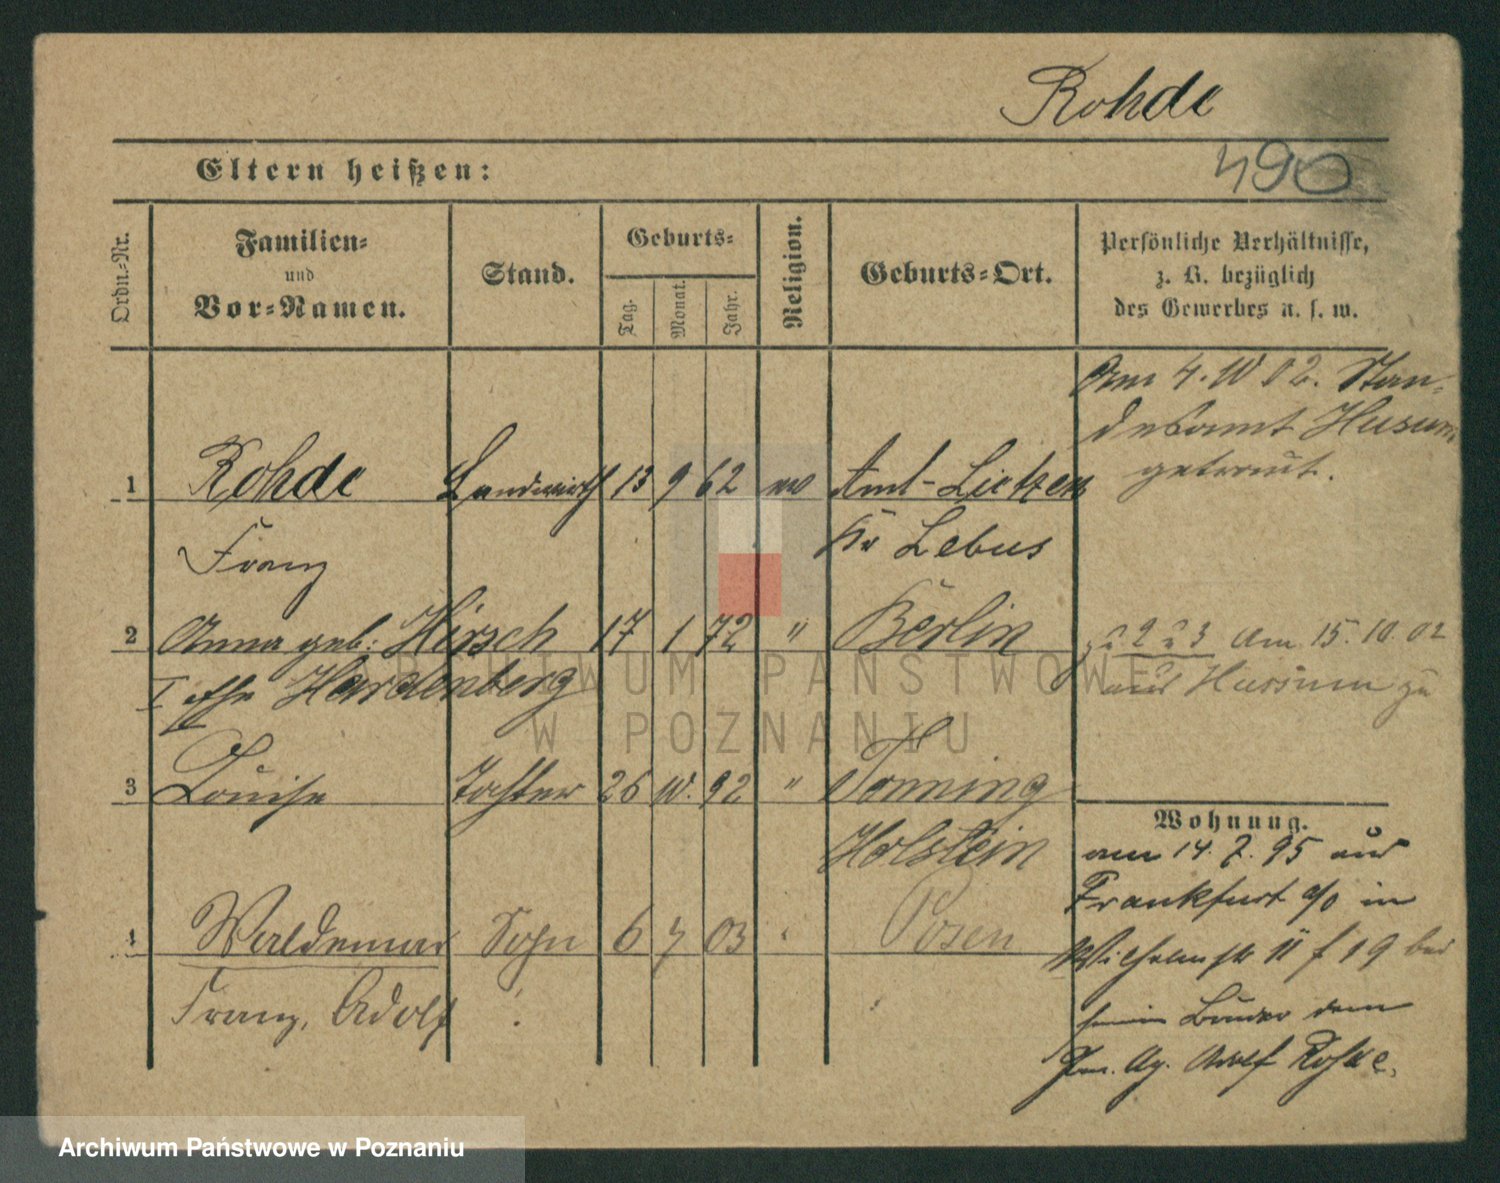 Rohde
490
Eltern heißen:
Ordn.-Nr.
Familien-
und
Vor-Namen.
Stand.
Geburts-
Tag.
Monat.
Jahr.
Religion.
Geburts-Ort.
Persönliche Verhältnisse,
z. B. bezüglich
des Gewerbes u. s. w.
Am 4. 10 02. Stan-
desamt Husum
getraut.
1 Rohde Landwirth 13 9 62 ev Amt-Lietzen
Franz Kr Lebus
2 Anna geb: Hirsch 17 1 72 " Berlin
I Ehe Hardenberg
zu 2 u 3 Am 15. 10. 02
aus Husum zu
3 Louise Tochter 26 10. 92 " Tonning
Holstein
4 Waldemar Sohn 6 7 03 Posen
Franz, Adolf
Wohnung.
am 14. 7. 95 aus
Frankfurt a/o in
Wilhelmstr 11 f 19 bei
seinem Bruder dem
Adolf Rohde.
ARCHIWUM PAŃSTWOWE
W POZNANIU
Archiwum Państwowe w Poznaniu